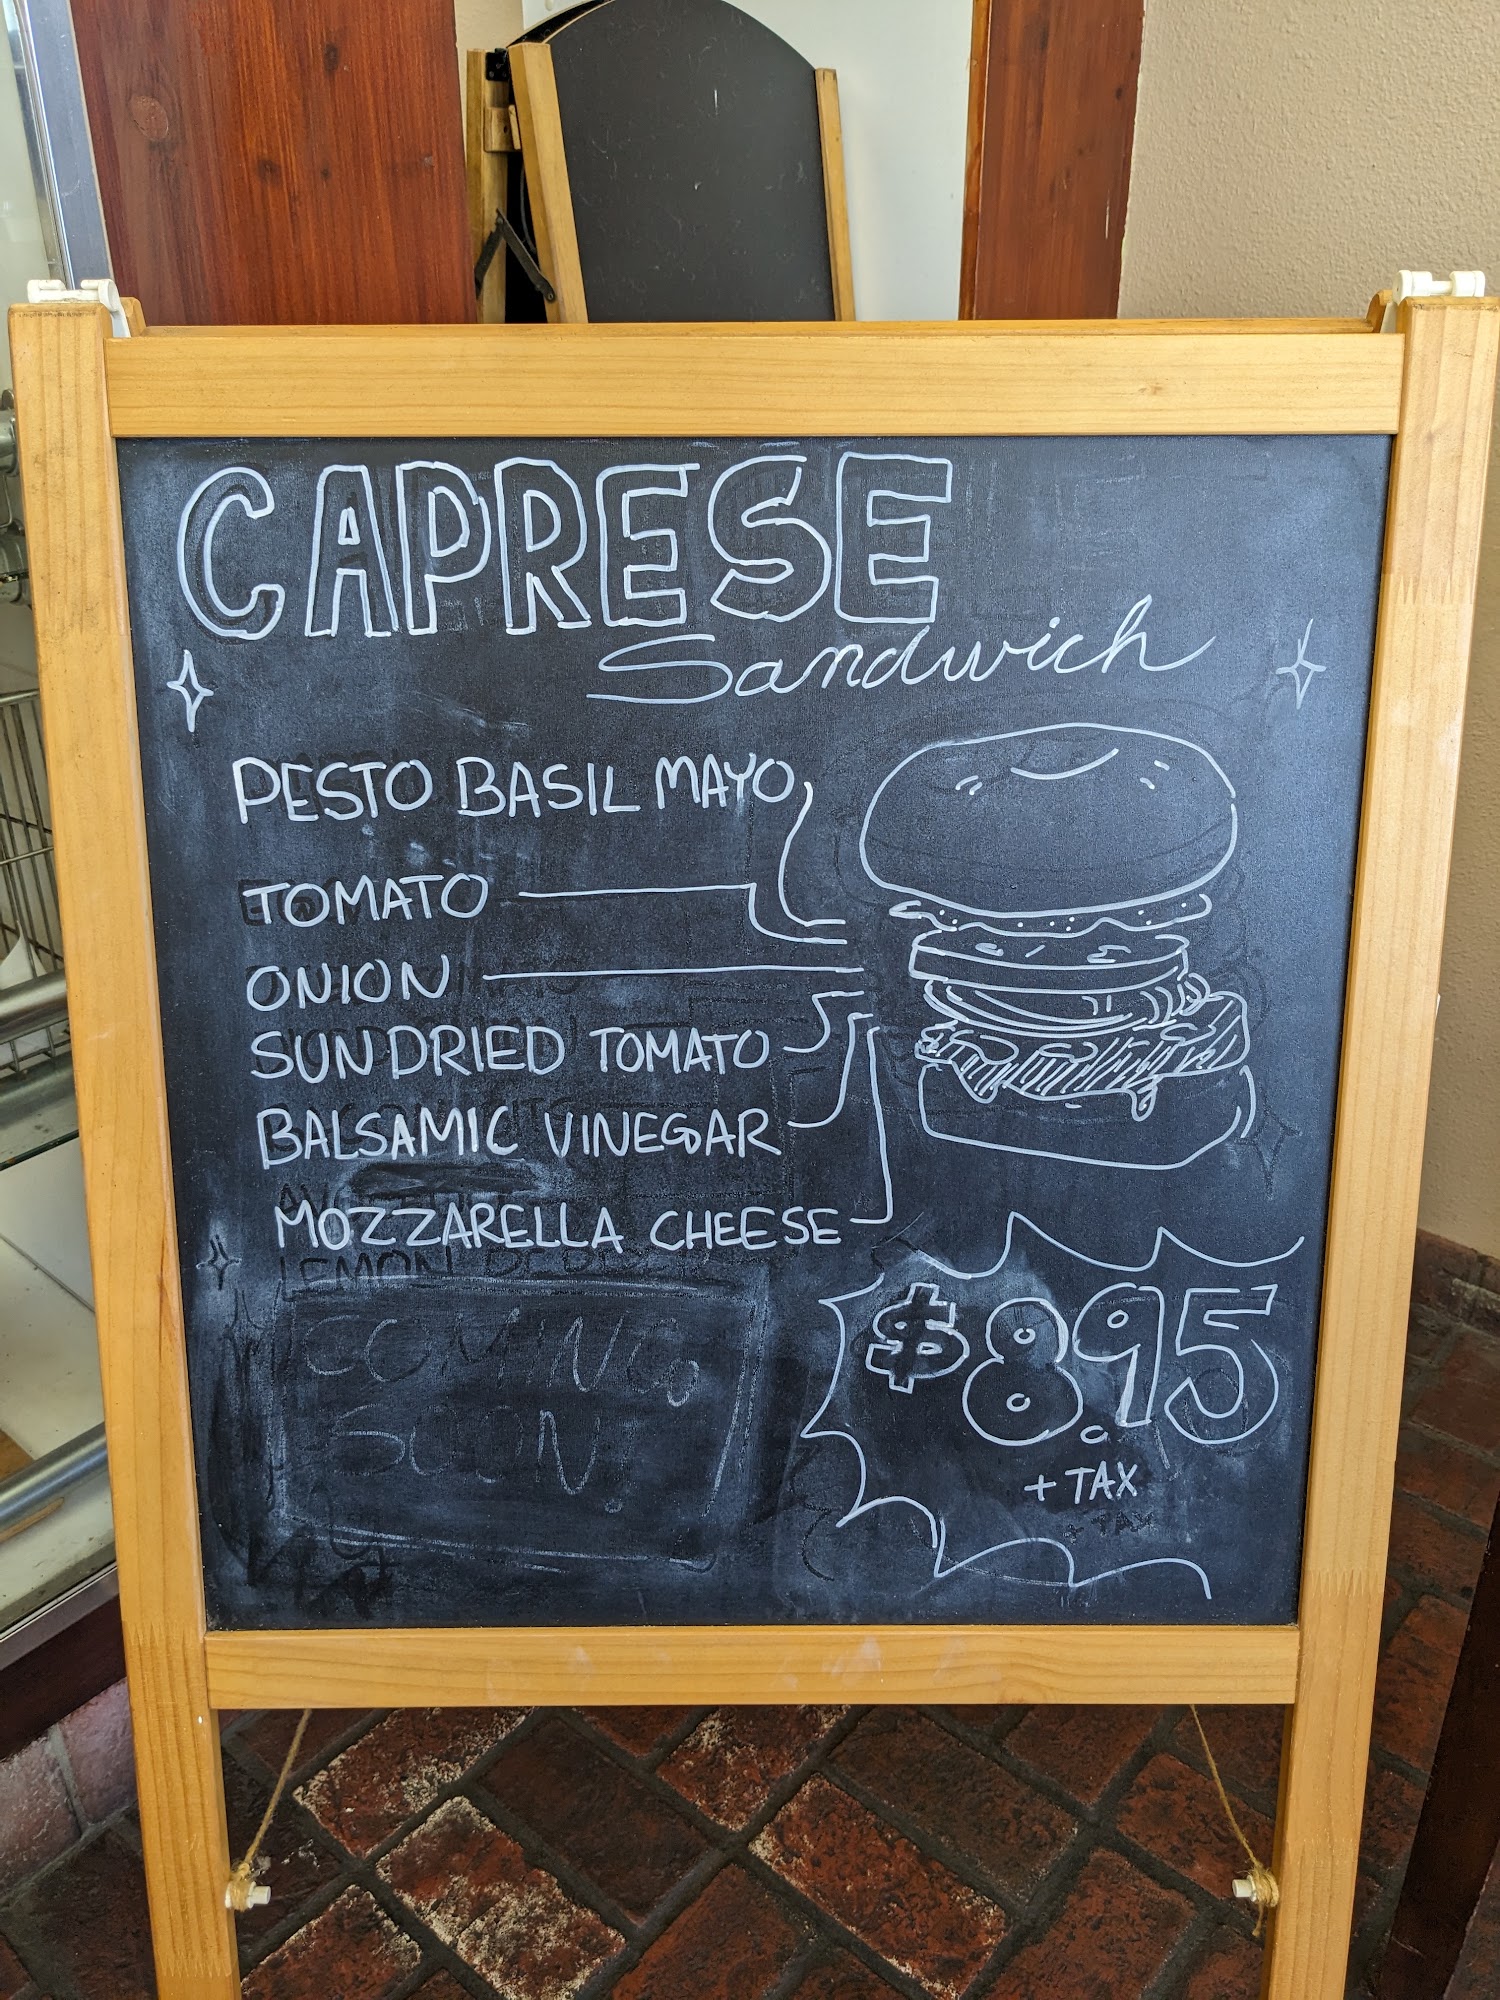 CAPRESE
Sandwich
PESTO BASIL MAYO
TOMATO
ONION
SUNDRIED TOMATO
BALSAMIC VINEGAR
MOZZARELLA CHEESE
LEMON
COMING
SOON!
$8.95
+ TAX
+ TAX